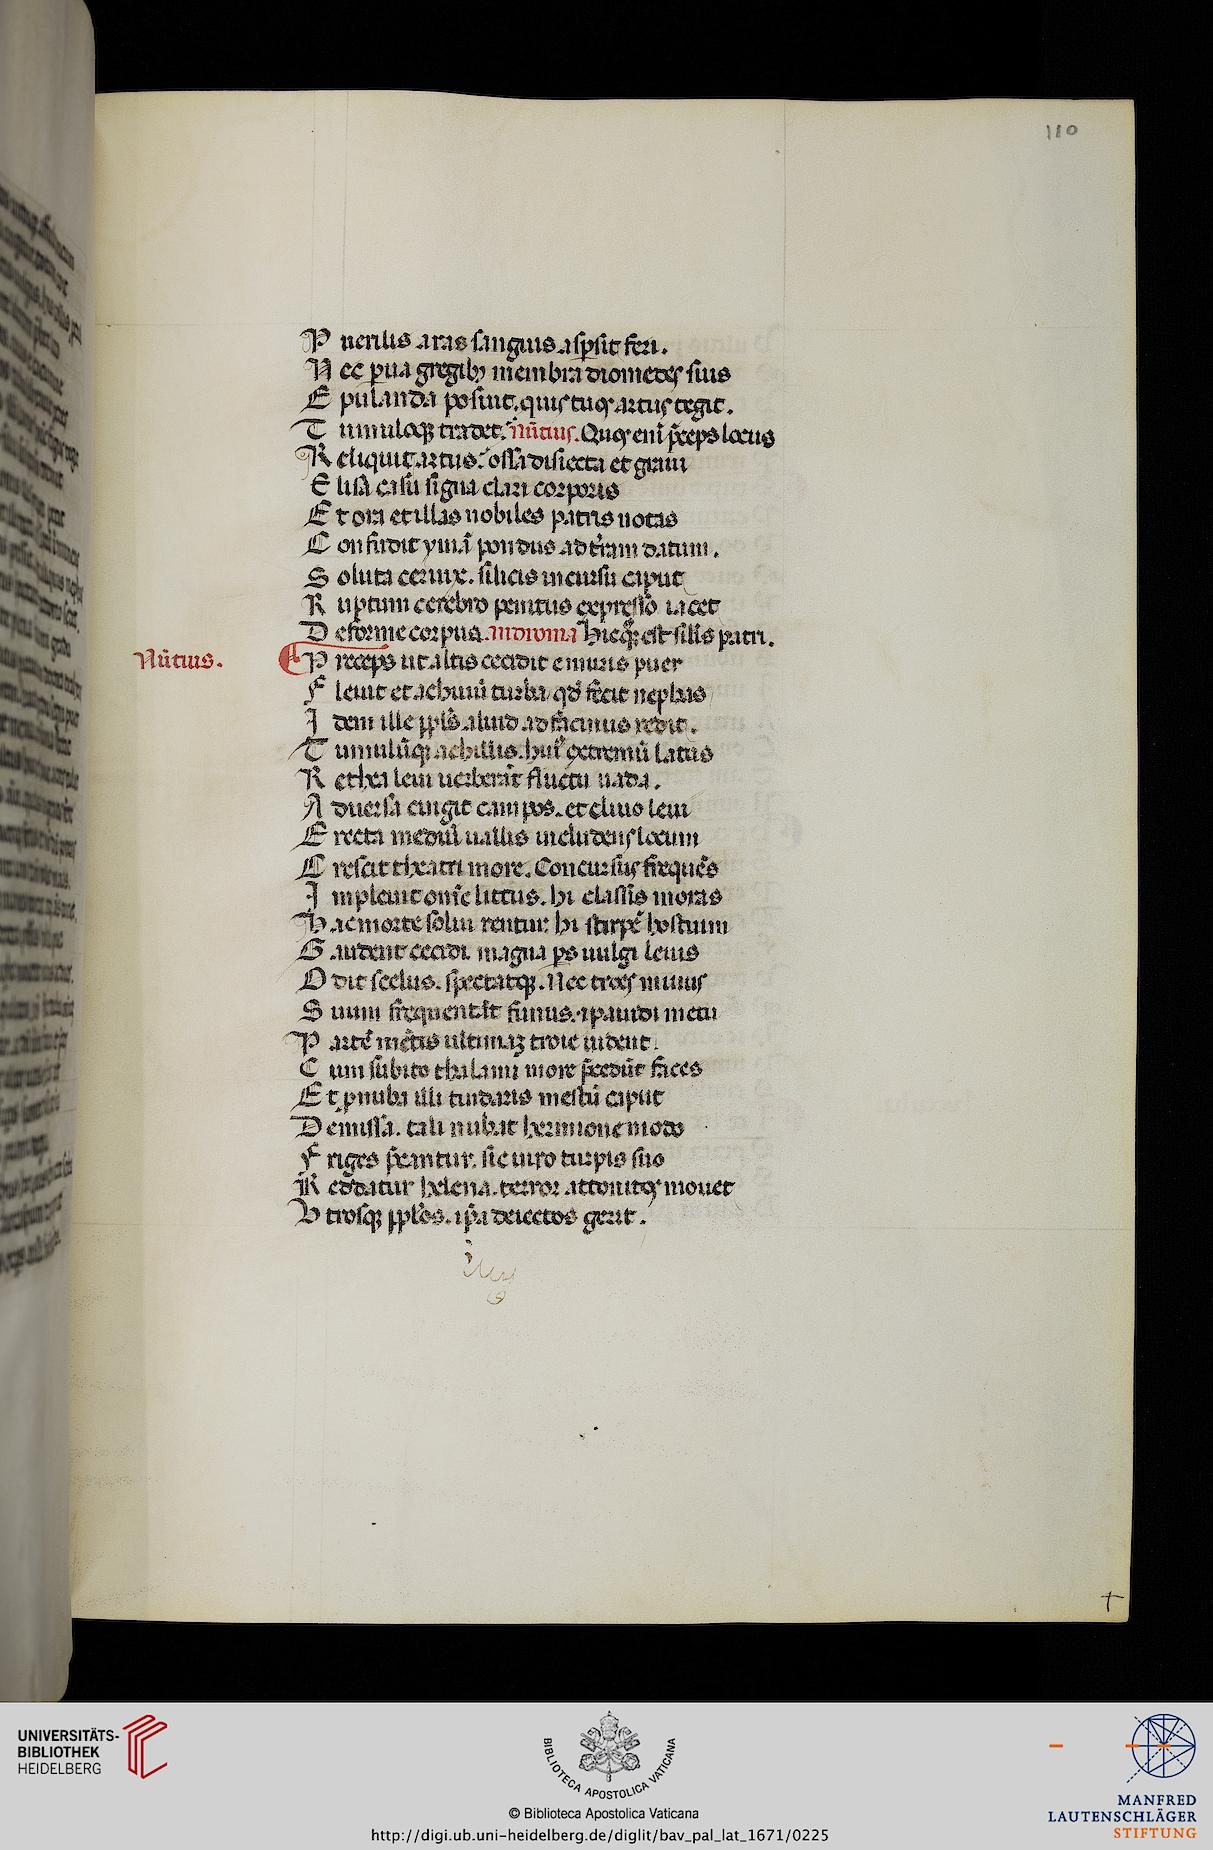 110
P uerilis aras sanguis asp̱sit feri.
N ec ꝑua gregibꝫ membra diomedes suis
E pulanda posuit. quis tuos artus tegit.
T umuloqꝫ tradet. Nūtius. Quos eni᷈ p̄ceps locus
R eliquit artus. ossa disiecta et graui
E lisa casu signa clari corporis
E t ora et illas nobiles patris notas
C onfudit ymū pondus ad t̄ram datum.
S oluta ceruix. silicis incursu caput
R uptum cerebro penitus expresso iacet
D eforme corpus. andromā Hic qꝫ est sil̄is patri.
Nūtius.
P receps ut altis cecidit e muris puer
F leuit et achiuū turba qd̄ fecit nephas
I dem ille ppl̄s aliud ad facinus redit.
T umulūqꝫ achillis. hui᷒ extremū latus
R ethea leui uerberāt fluctu uada.
A duersa cingit campos. et cliuo leui
E recta mediū uallis includens locum
C rescit theatri more. Concursus frequēs
I mpleuit om̄e littus. hi classis moras
H ac morte solui rentur. hi stirpē hostium
G audent cecidi. magna ꝑs uulgi leuis
O dit scelus. spectatqꝫ. Nec troes minus
S uum frequentāt funus. ⁊ pauidi metu
P artē mētis ultimaꝫ troie uident.
C um subito thalami more p̄cedūt faces
E t ꝓnuba illi tindaris mestū caput
D emissa. tali nubat hermione modo
F riges p̄cantur. sic uiro turpis suo
R eddatur helena. terror attonitos mouet
V trosqꝫ ppl̄os. ip̄a deiectos gerit.
UNIVERSITÄTS-
BIBLIOTHEK
HEIDELBERG
BIBLIOTECA APOSTOLICA VATICANA
© Biblioteca Apostolica Vaticana
http://digi.ub.uni-heidelberg.de/diglit/bav_pal_lat_1671/0225
MANFRED
LAUTENSCHLÄGER
STIFTUNG